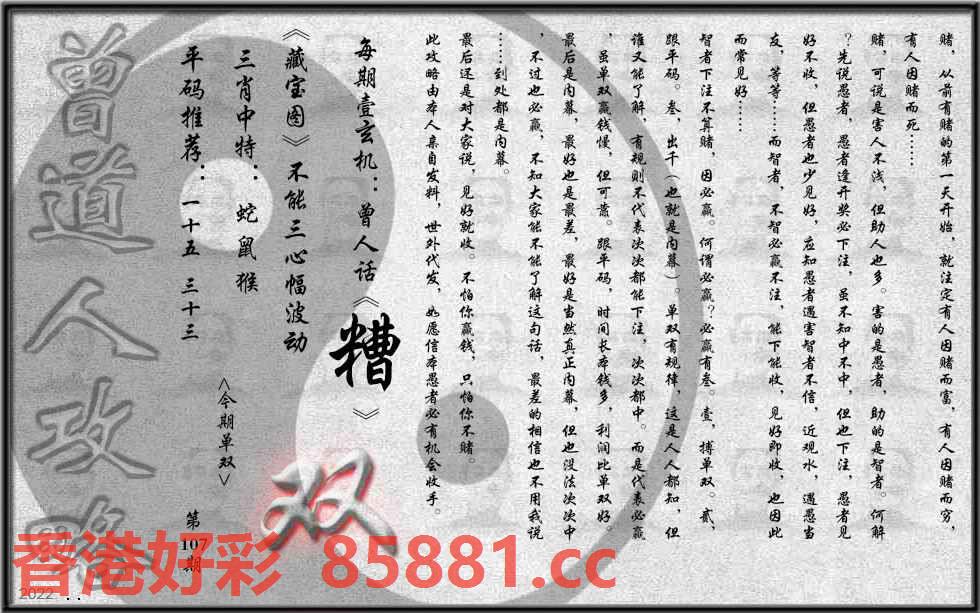 赌，从前有赌的第一天开始，就注定有人因赌而富，有人因赌而穷，
有人因赌而死……
赌，可说是害人不浅，但助人也多。害的是愚者，助的是智者。何解
？先说愚者，愚者逢开奖必下注，虽不知中不中，但也下注，愚者见
好不收，但愚者也少见好，应知愚者遇害智者不信，近观水，遇愚当
友，等等……而智者，不智必赢不注，能下能收，见好即收，也因此
而常见好……
智者下注不算赌，因必赢。何谓必赢？必赢有叁。壹，搏单双。贰，
跟平码。叁，出千（也就是内幕）。单双有规律，这是人人都知，但
谁又能了解，有规则不代表次次都能下注，次次都中。而是代表必赢
，虽单双赢钱慢，但可靠。跟平码，时间长本钱多，利润比单双好。
最后是内幕，最好也是最差，最好是当然真正内幕，但也没法次次中
，不过也必赢，不知大家能不能了解这句话，最差的相信也不用我说
……到处都是内幕。
最后还是对大家说，见好就收。不怕你赢钱，只怕你不赌。
此攻略由本人亲自发料，世外代发，如愿信本愚者必有机会收手。
每期壹玄机：曾人话《糟》
《藏宝图》不能三心幅波动
三肖中特：蛇鼠猴
<今期单双>
双
平码推荐：一十五 三十三
第
107
期
曾道人攻略
香港好彩 85881.cc
2022